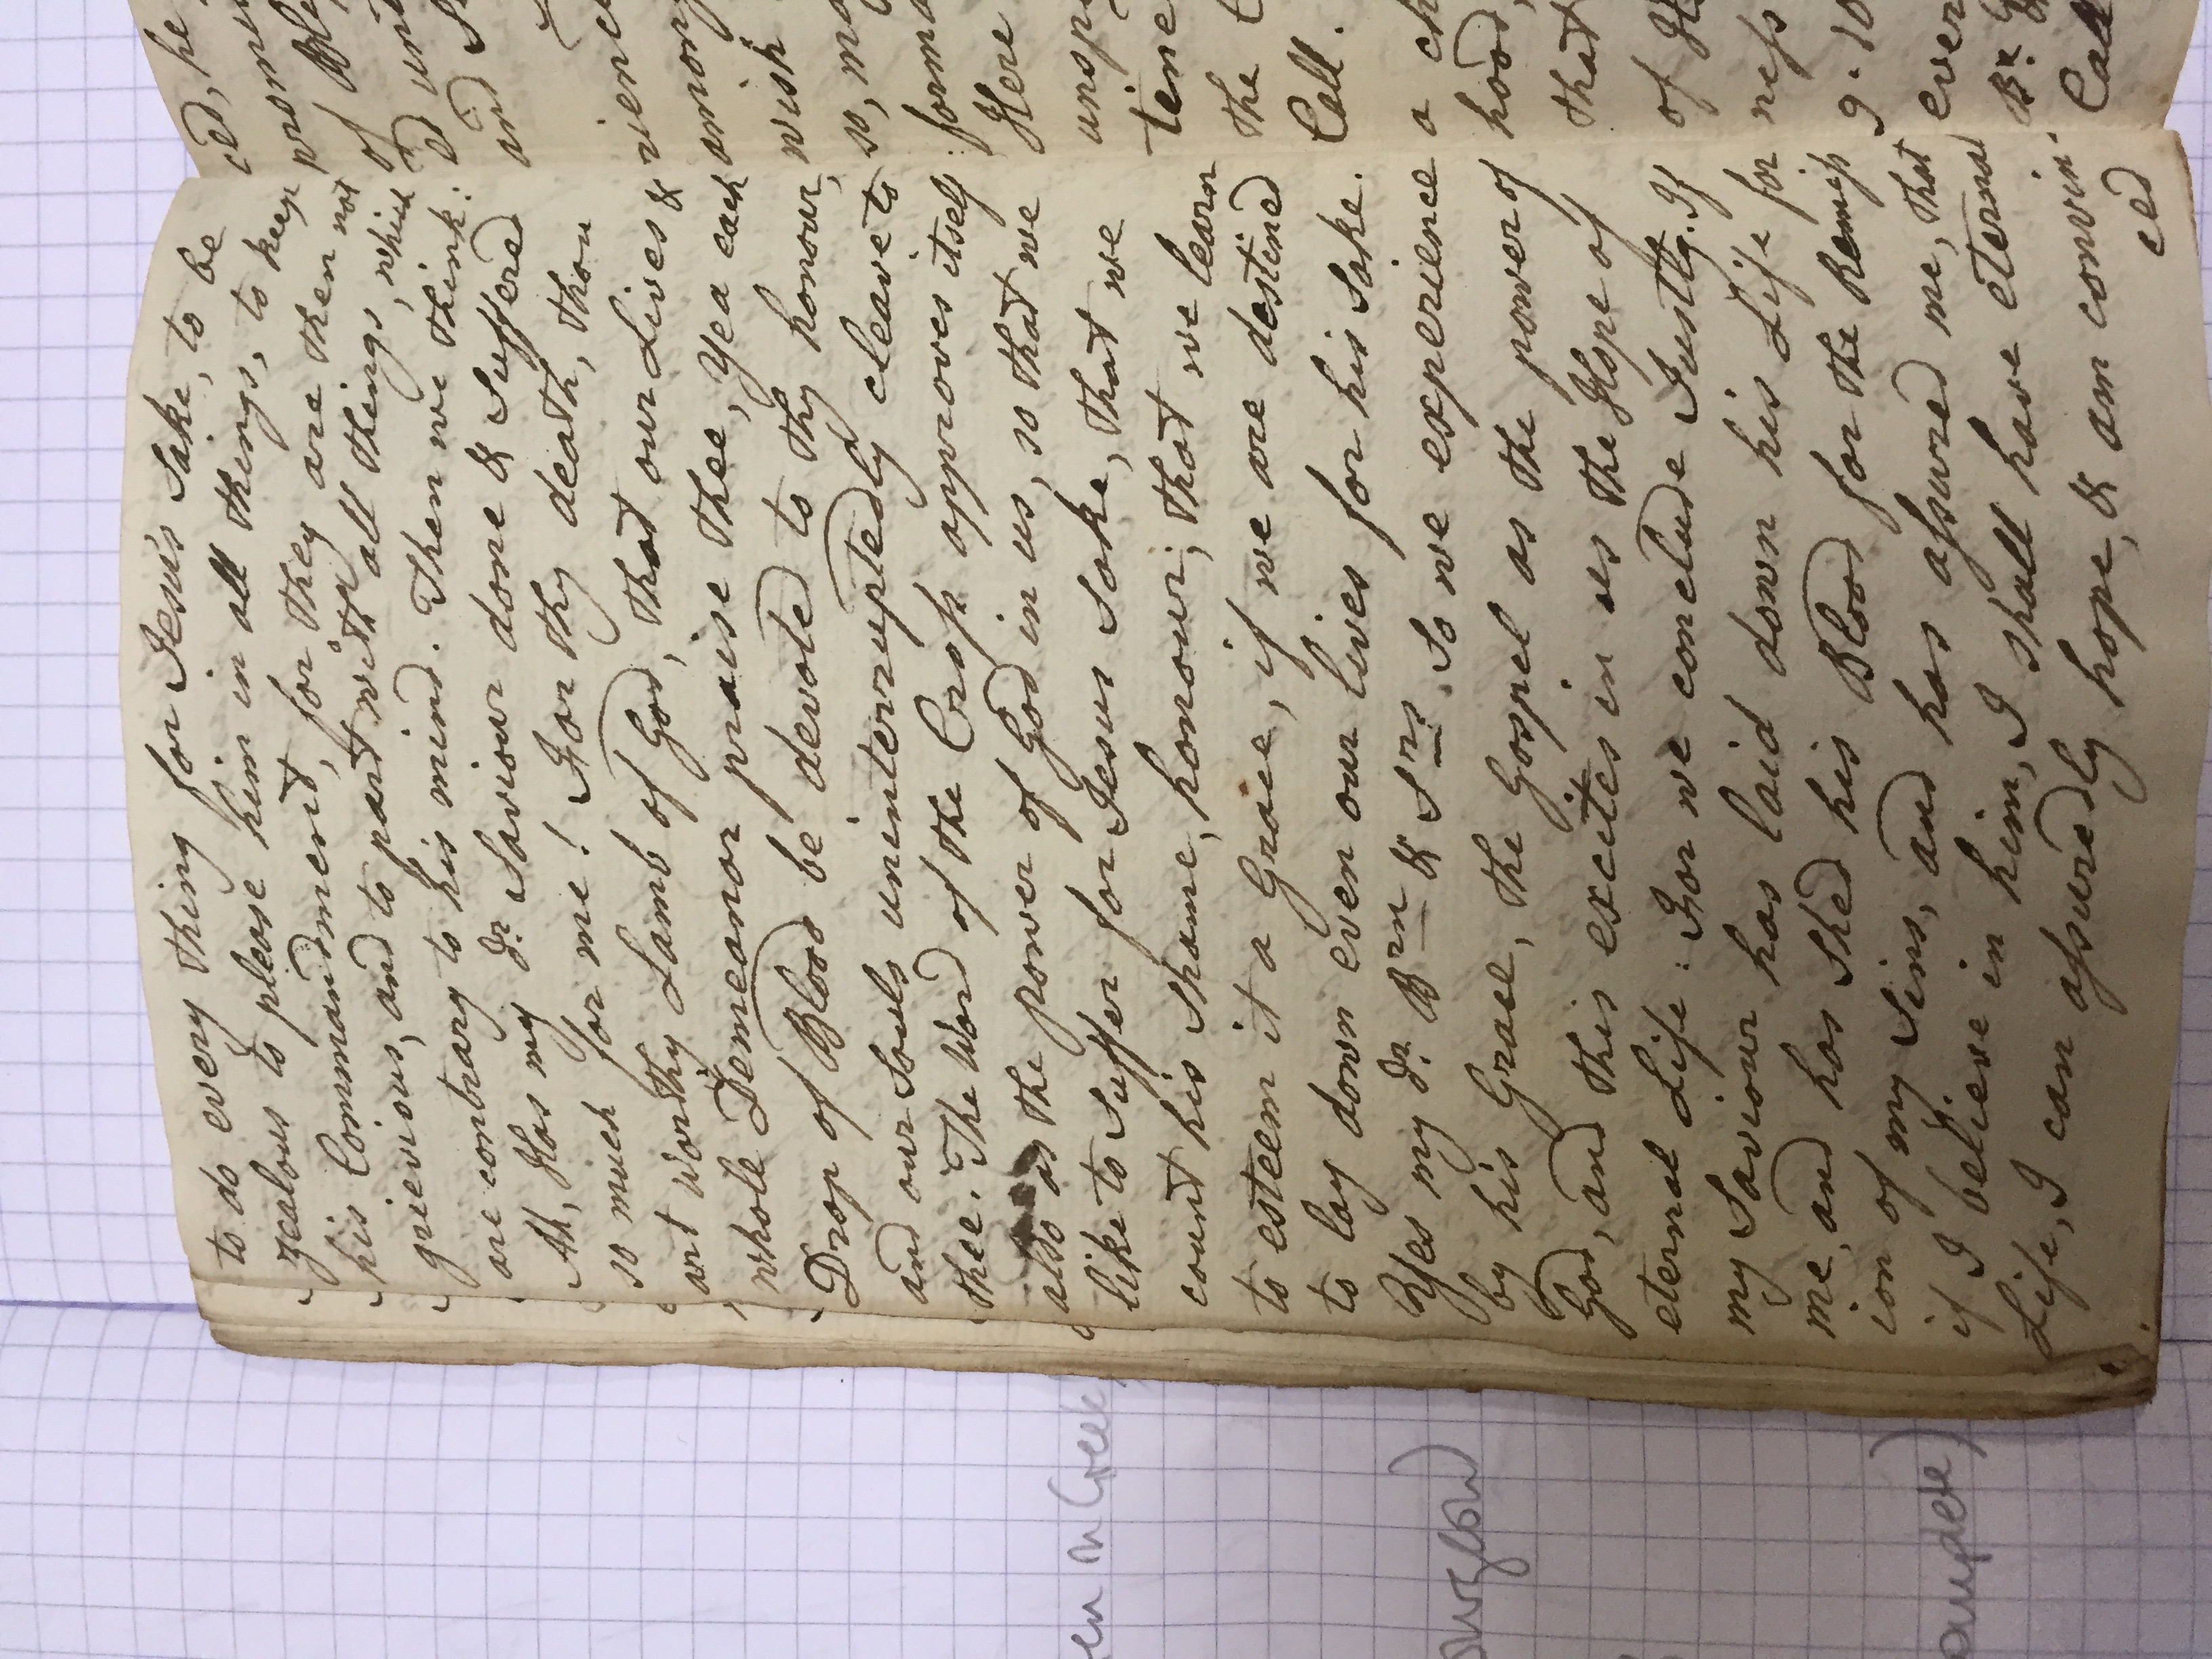 to do every thing for Jesu's Sake, to be
zealous to please him in all things, to keep
his Commandment, for they are then not
grievious, and to part with all things, which
are contrary to his mind. Then we think:
Ah, Has my dr. Saviour done & Suffered
so much for me! For thy death, thou
art worthy Lamb of God, that our Lives &
whole Demeanor praise thee, Yea each
Drop of Blood be devoted to thy honour,
and our Souls uninterruptedly cleave to
thee. The Word of the Croſs approves itself
also as the power of God in us, so that we
like to Suffer for Jesus Sake, that we
count his shame, honour; that we learn
to esteem it a Grace, if we are destined
to lay down even our lives for his Sake.
Yes my dr. Brn & Srs. So we experience
by his Grace, the Gospel as the power of
God, and this excites in us the Hope of
eternal Life: For we conclude Justly. If
my Saviour has laid down his Life for
me, and has Shed his Blood for the Remiſs
ion of my Sins, and has aſsured me, that
if I believe in him, I shall have eternal
Life, I can aſsuredly hope, & am convin-
ced
ced, he
of
and
among
wish
so,
Here
the
Call.
a
hood,
that
of
neſs
9. 10
ever
Br. &
Call